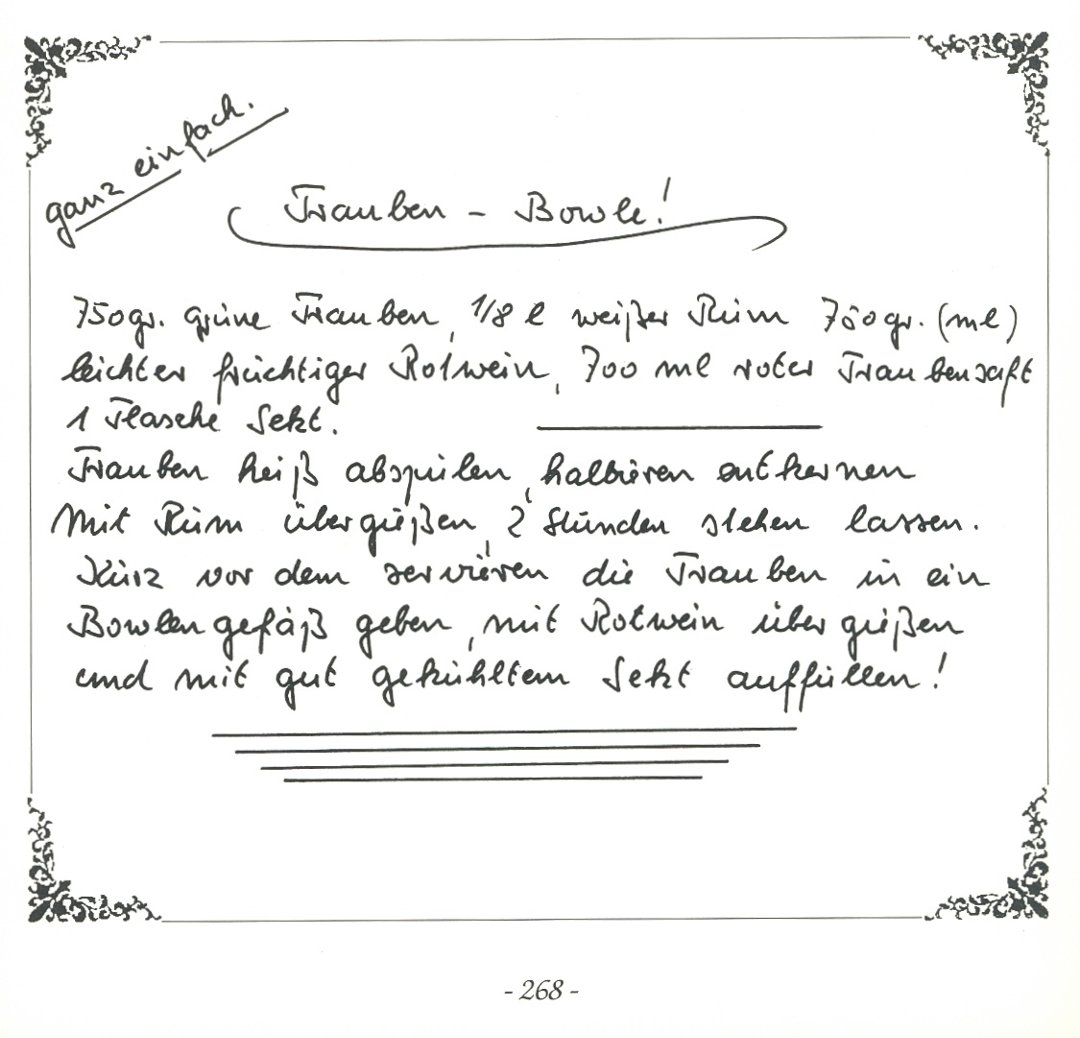 ganz einfach.
Trauben - Bowle!
750gr. grüne Trauben, 1/8 l weißer Rum 750gr. (ml)
leichter früchtiger Rotwein, 700 ml roter Traubensaft
1 Flasche Sekt.
Trauben heiß abspülen, halbieren entkernen
Mit Rum übergießen, 2 Stunden stehen lassen.
Kurz vor dem servieren die Trauben in ein
Bowlengefäß geben, mit Rotwein übergießen
und mit gut gekühltem Sekt auffüllen!
- 268 -